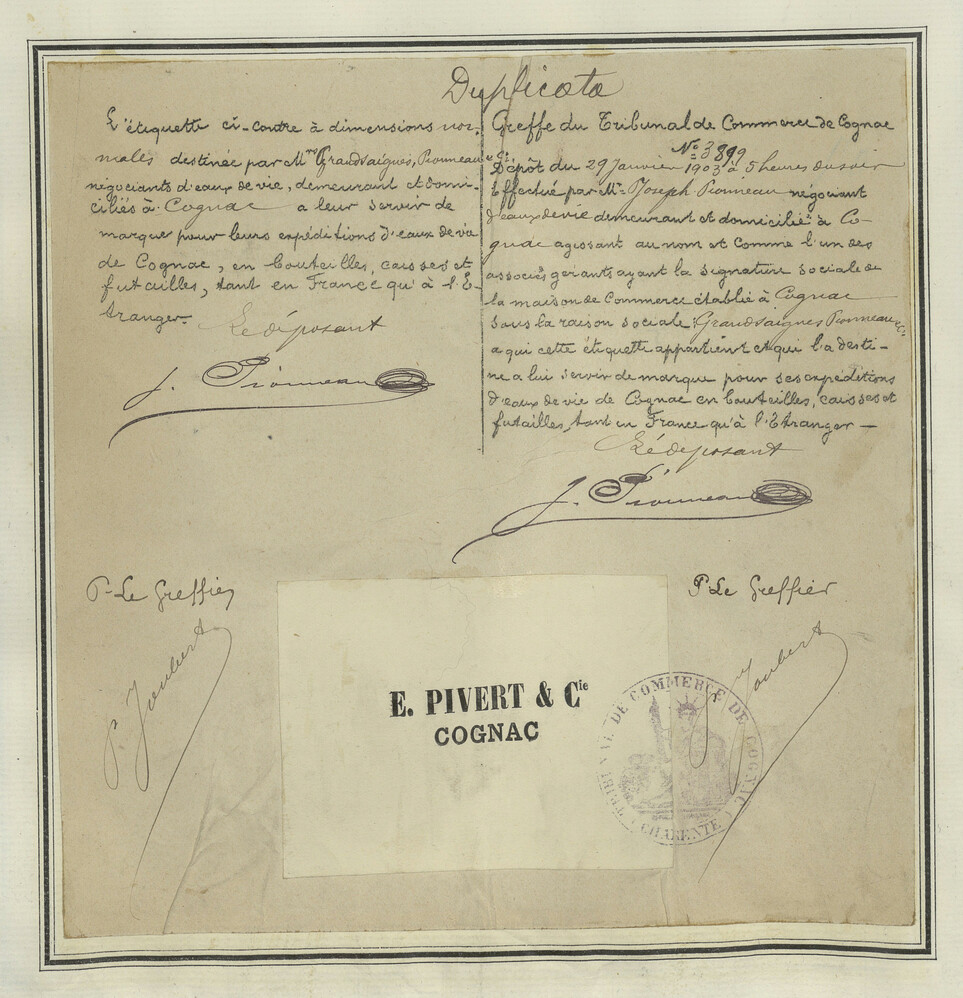 Duplicata
L'étiquette ci-contre à dimensions nor-
males destinée par Mrs Grandsaignes, Pionneau & Cie
négociants d'eaux de vie, demeurant et domi-
ciliés à Cognac a leur servir de
marque pour leurs expéditions d'eaux de vie
de Cognac, en bouteilles, caisses et
futailles, tant en France qu'à l'E-
tranger.
Le déposant
J. Pionneau
Greffe du Tribunal de Commerce de Cognac
No 3899
Dépôt du 29 Janvier 1903 à 5 heures du soir
Effectué par Mr Joseph Pionneau négociant
d'eaux de vie demeurant et domicilié à Co-
gnac agissant au nom et comme l'un des
associés gérants ayant la signature sociale de
la maison de Commerce établie à Cognac
sous la raison sociale: Grandsaignes Pionneau & Cie
a qui cette étiquette appartient et qui l'a desti-
né a lui servir de marque pour ses expéditions
d'eaux de vie de Cognac en bouteilles, caisses et
futailles, tant en France qu'à l'Etranger —
Le déposant
J. Pionneau
P. Le Greffier
P. Joubert
P. Le Greffier
Joubert
E. PIVERT & Cie
COGNAC
TRIBUNAL DE COMMERCE DE COGNAC
(CHARENTE)